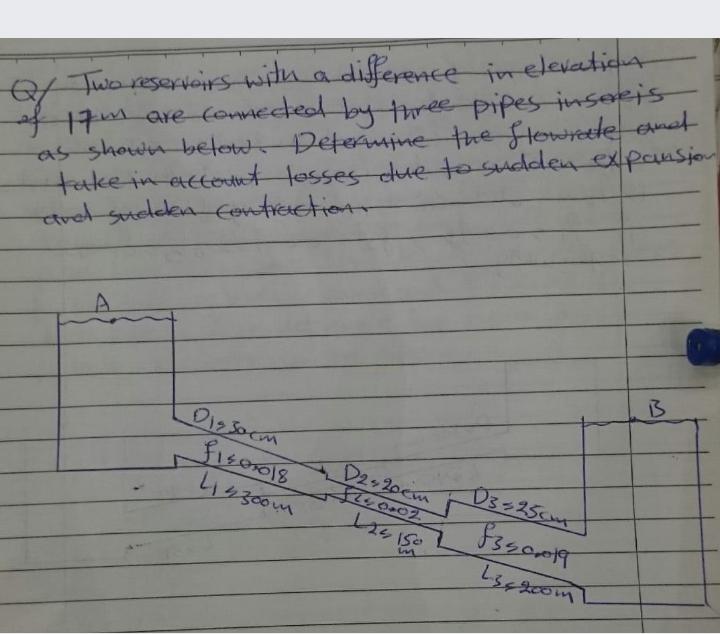 Q/ Two reservoirs with a difference in elevation
of 17m are connected by three pipes insereis
as shown below. Determine the flowrate and
take in account losses due to sudden expansion
and sudden contraction.
A
B
D1=30cm
f1=0.018
L1=300m
D2=20cm
f2=0.02
L2=150
m
D3=25cm
f3=0.019
L3=200m